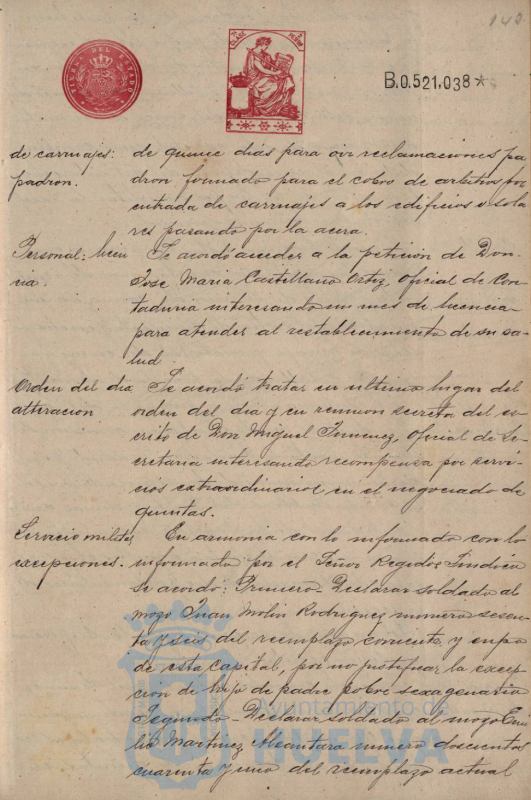 142
TIMBRE DEL ESTADO
B.0.521.038*
de carruajes: de quince dias para oir reclamaciones pa
padron. dron formado para el cobro de arbitrios por
entrada de carruajes a los edificios o sola
res pasando por la acera.
Personal: licen Se acordó acceder a la petición de Don
cia. Jose Maria Castellano Ortiz, oficial de Con
taduria interesando un mes de licencia
para atender al restablecimiento de su sa-
lud.
Orden del dia Se acordó tratar en ultimo lugar del
alteracion orden del dia y en reunion secreta del es
crito de Don Miguel Jimenez, oficial de Se
cretaria interesando recompensa por servi
cios extraordinarios en el negociado de
quintas.
Servicio militar En armonia con lo informado con lo
excepciones. informado por el Señor Regidor Sindico
se acordó: Primero- Declarar soldado al
mozo Juan Molin Rodriguez numero sesen
ta y seis del reemplazo corriente y cupo
de esta Capital, por no justificar la excep
cion de hijo de padre pobre sexagenario
Segundo- Declarar soldado al mozo Emi
lio Martinez Alcantara numero doscientos
cuarenta y uno del reemplazo actual
Ayuntamiento de
HUELVA